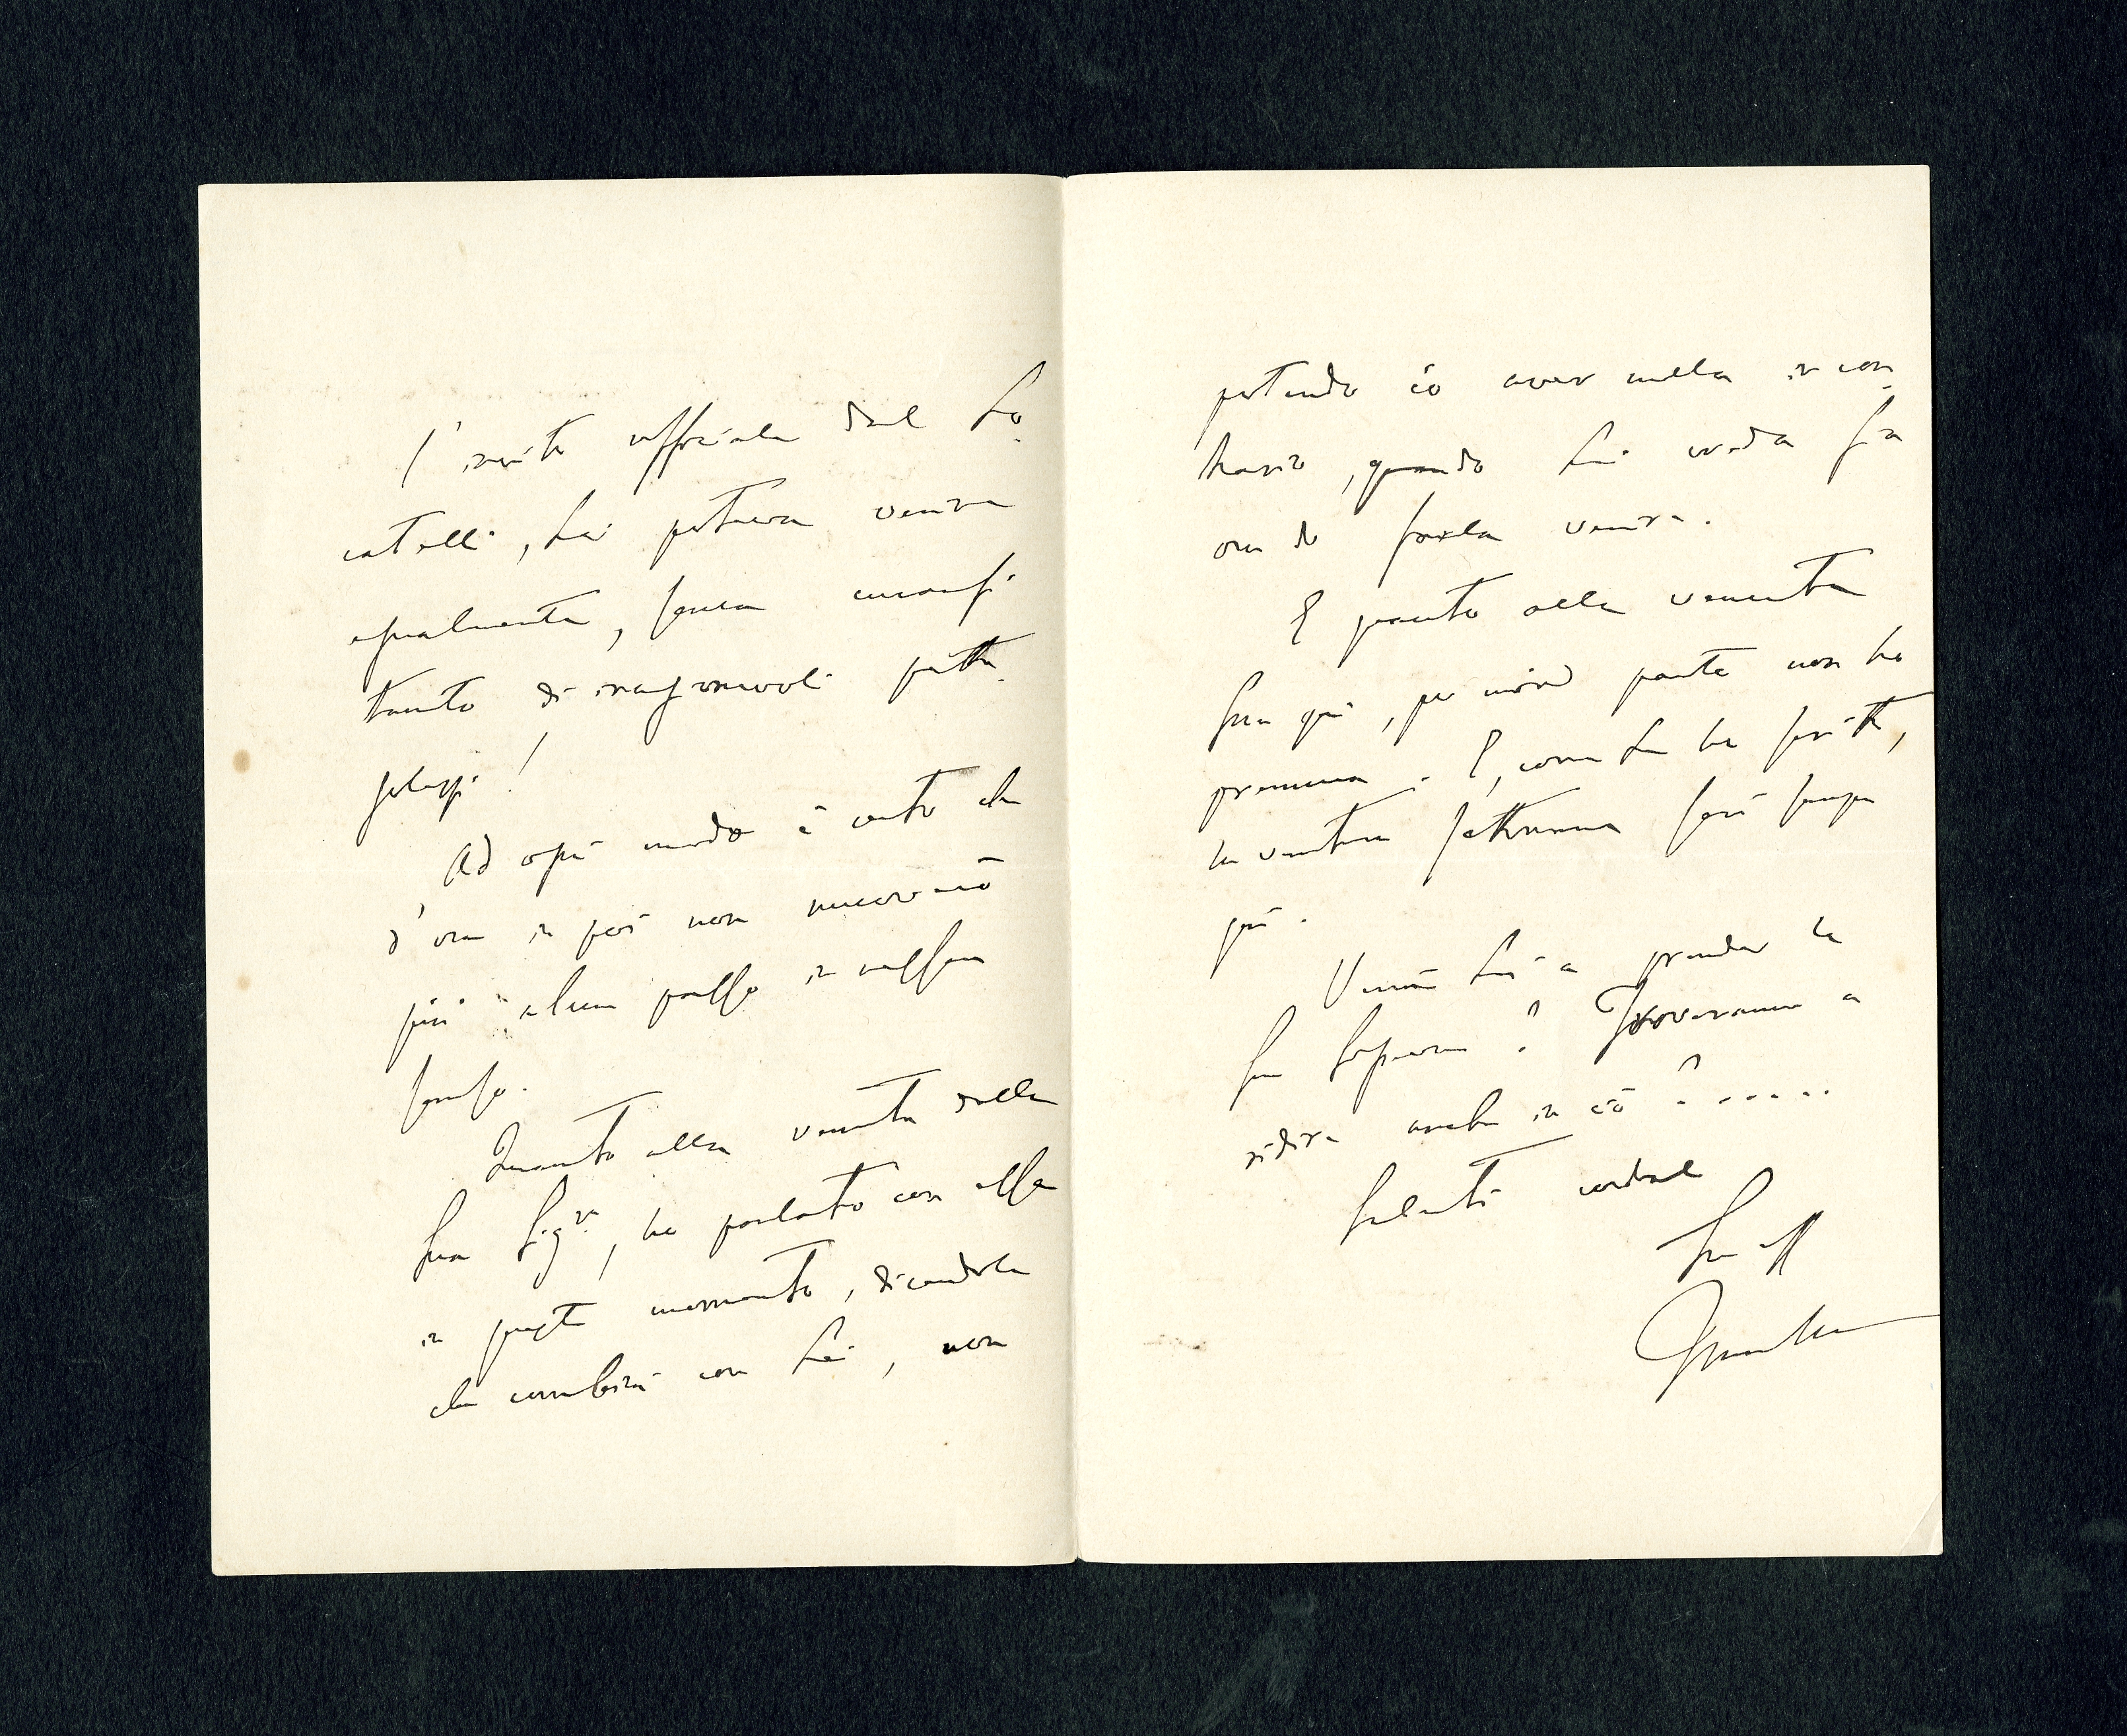 l'invito ufficiale dal Lo-
catelli, Lei poteva venire
egualmente, senza
tanto di irragionevoli pette-
golezzi!
Ad ogni modo è certo che
d'ora in poi non muoverò
più alcun passo in nessun
senso.
Quanto alla venuta della
Sua Sig.ra, ho parlato con essa
in questo momento, dicendole
che combini con Lei, non
potendo io aver nulla in con-
trario, quando Lei creda sia
ora di farla venire.
E quanto alla venuta
Sua qui, per mio parte non ho
premura. E, come Le ho scritto,
la ventura settimana sarò sempre
qui.
Verrà Lei a prender la
Sua Signora? Troveranno a
ridire anche in ciò? .....
Saluti cordiali
Suo aff